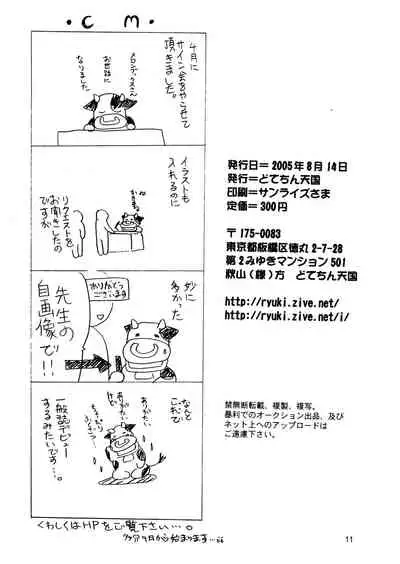 ・CM・
4月に
サイン会をやらせて
頂きました。
メロンブックスさん
お世話に
なりました。
イラストも
入れるのに
リクエストを
お聞きしたの
ですが
妙に
多かった
ありがとう
ございます
先生の
自画像で!!
なんと
これで
ありがたい
けど
ちょっぴり
ふくざつ…
一般誌デビュー
するみたいです…。
くわしくはHPをご覧下さい…。
発行日=2005年8月14日
発行=どてちん天国
印刷=サンライズさま
定価=300円
〒175-0083
東京都板橋区徳丸2-7-28
第2みゆきマンション501
秋山(様)方 どてちん天国
http://ryuki.zive.net/
http://ryuki.zive.net/i/
禁無断転載、複製、複写。
暴利でのオークション出品、及び
ネット上へのアップロードは
ご遠慮下さい。
11